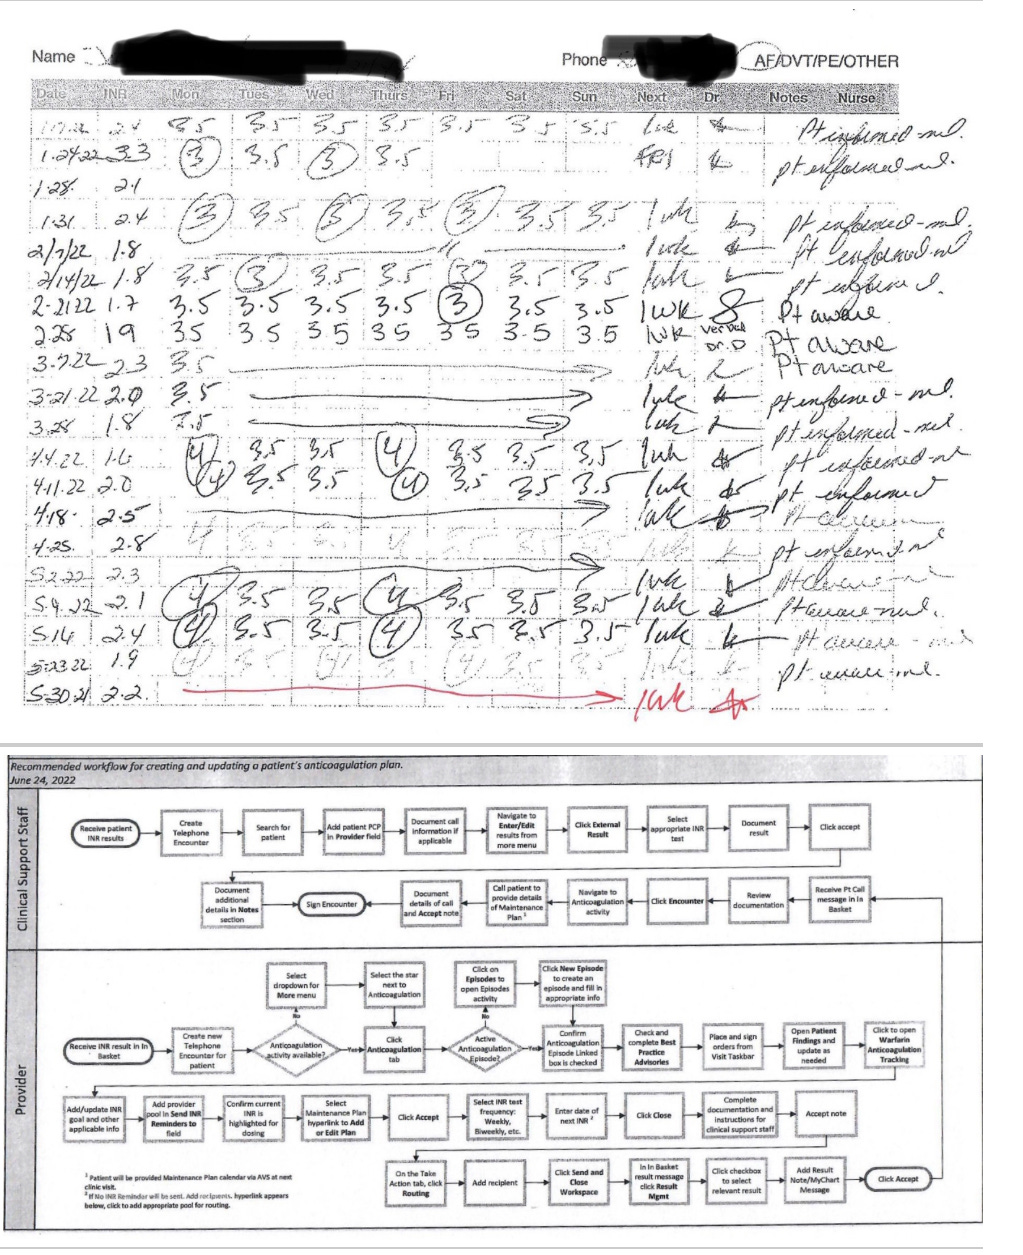 Name
Phone
AF/DVT/PE/OTHER
Date INR Mon Tues Wed Thurs Fri Sat Sun Next Dr Notes Nurse
2.4 3.5 3.5 3.5 3.5 3.5 3.5 3.5 1wk Pt informed
1.24.22 3.3 3 3.5 3 3.5 FRI pt informed
1.28. 2.1
1.31 2.4 3 3.5 3 3.5 3 3.5 3.5 1wk pt informed
2/7/22 1.8 1wk pt informed
2/14/22 1.8 3.5 3 3.5 3.5 3 3.5 3.5 1wk pt informed
2-21-22 1.7 3.5 3.5 3.5 3.5 3 3.5 3.5 1WK Pt aware
2.28 19 35 35 35 35 35 3.5 3.5 1WK Verbal Dr.D Pt aware
3.7.22 2.3 3.5 1wk Pt aware
3-21-22 2.0 3.5 1wk pt informed
3.28 1.8 3.5 1wk pt informed
4.4.22 1.6 4 3.5 3.5 4 3.5 3.5 3.5 1wk pt informed
4.11.22 2.0 4 3.5 3.5 4 3.5 3.5 3.5 1wk pt informed
4.18. 2.5 1wk Pt
4.25. 2.8 4 pt informed
5.2.22 2.3 1wk pt aware
5.9.22 2.1 4 3.5 3.5 4 3.5 3.5 3.5 1wk Pt aware
5.16 2.4 4 3.5 3.5 4 3.5 3.5 3.5 1wk pt aware
5.23.22 1.9 pt aware
5-30-21 2.2. 1wk
Recommended workflow for creating and updating a patient's anticoagulation plan.
June 24, 2022
Clinical Support Staff
Receive patient INR results
Create Telephone Encounter
Search for patient
Add patient PCP in Provider field
Document call information if applicable
Navigate to Enter/Edit results from more menu
Click External Result
Select appropriate INR test
Document result
Click accept
Document additional details in Notes section
Sign Encounter
Document details of call and Accept note
Call patient to provide details of Maintenance Plan 1
Navigate to Anticoagulation activity
Click Encounter
Review documentation
Receive Pt Call message in In Basket
Provider
Select dropdown for More menu
Select the star next to Anticoagulation
Click on Episodes to open Episodes activity
Click New Episode to create an episode and fill in appropriate info
No
No
Receive INR result in In Basket
Create new Telephone Encounter for patient
Anticoagulation activity available?
Yes
Click Anticoagulation tab
Active Anticoagulation Episode?
Yes
Confirm Anticoagulation Episode Linked box is checked
Check and complete Best Practice Advisories
Place and sign orders from Visit Taskbar
Open Patient Findings and update as needed
Click to open Warfarin Anticoagulation Tracking
Add/update INR goal and other applicable info
Add provider pool in Send INR Reminders to field
Confirm current INR is highlighted for dosing
Select Maintenance Plan hyperlink to Add or Edit Plan
Click Accept
Select INR test frequency: Weekly, Biweekly, etc.
Enter date of next INR 2
Click Close
Complete documentation and instructions for clinical support staff
Accept note
1 Patient will be provided Maintenance Plan calendar via AVS at next clinic visit.
2 If No INR Reminder will be sent. Add recipients. hyperlink appears below, click to add appropriate pool for routing.
On the Take Action tab, click Routing
Add recipient
Click Send and Close Workspace
In In Basket result message click Result Mgmt
Click checkbox to select relevant result
Add Result Note/MyChart Message
Click Accept